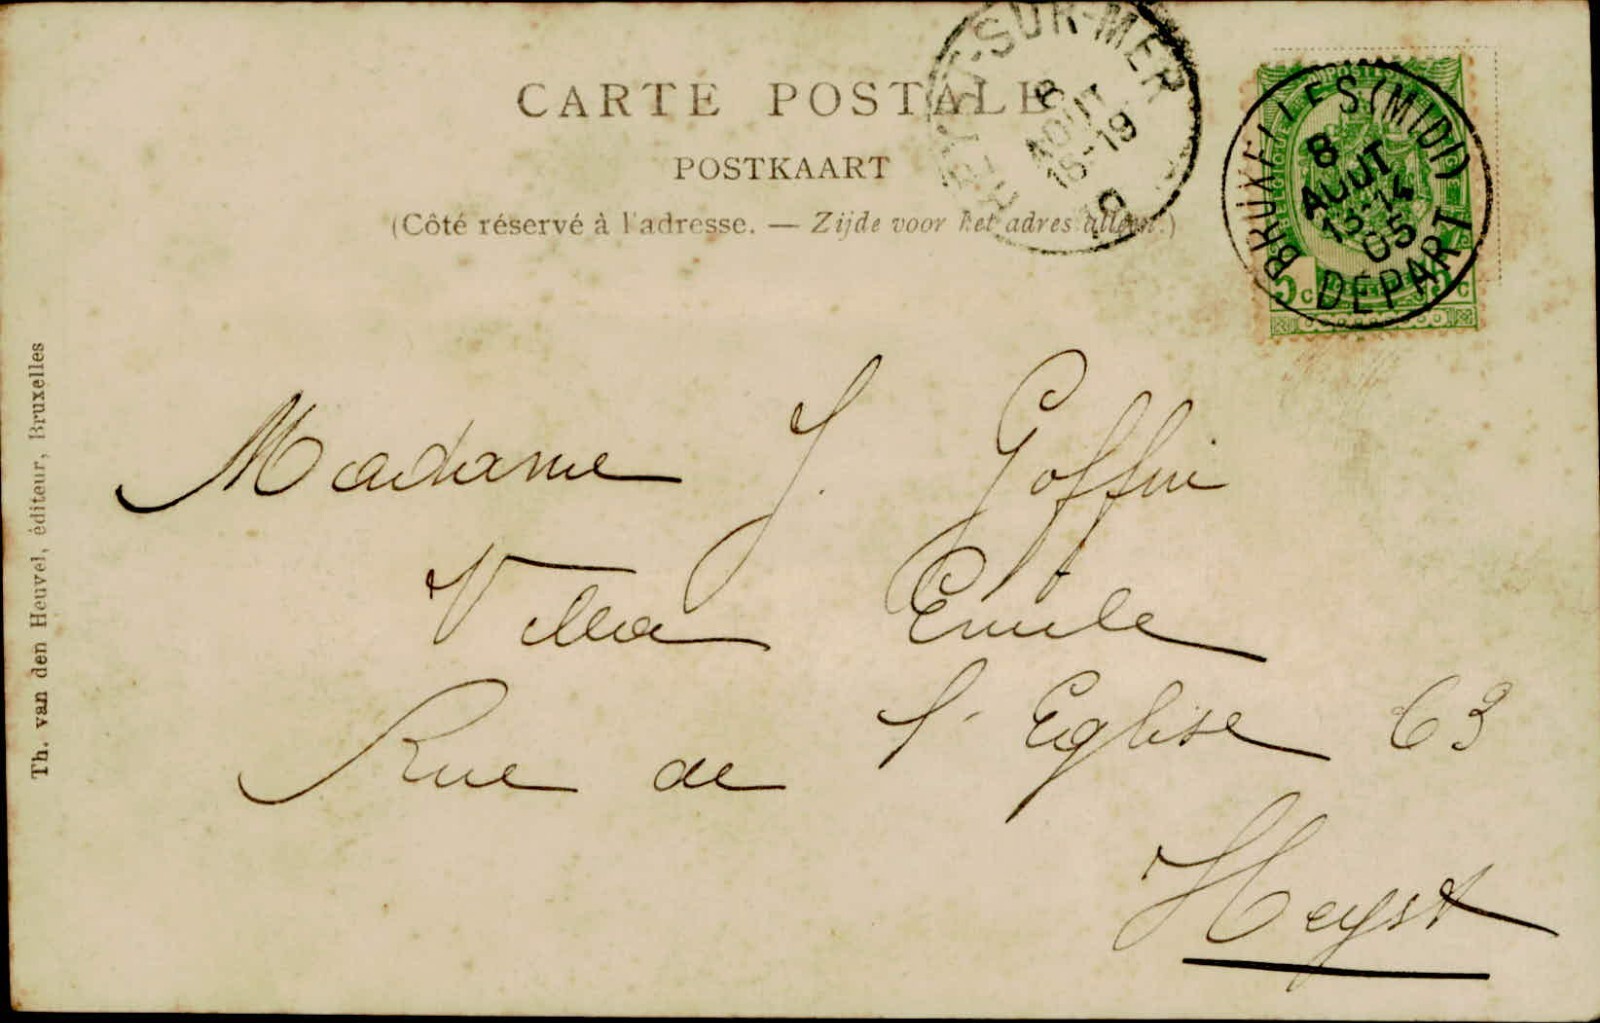 CARTE POSTALE
POSTKAART
(Côté réservé à l'adresse. — Zijde voor het adres alleen.)
SUR-MER
8
AOUT
18-19
BRUXELLES (MIDI)
8
AOUT
13-14
05
DEPART
5 c
5 c
Madame J. Goffin
Villa Emile
Rue de l'Eglise 63
Heyst
Th. van den Heuvel, éditeur, Bruxelles